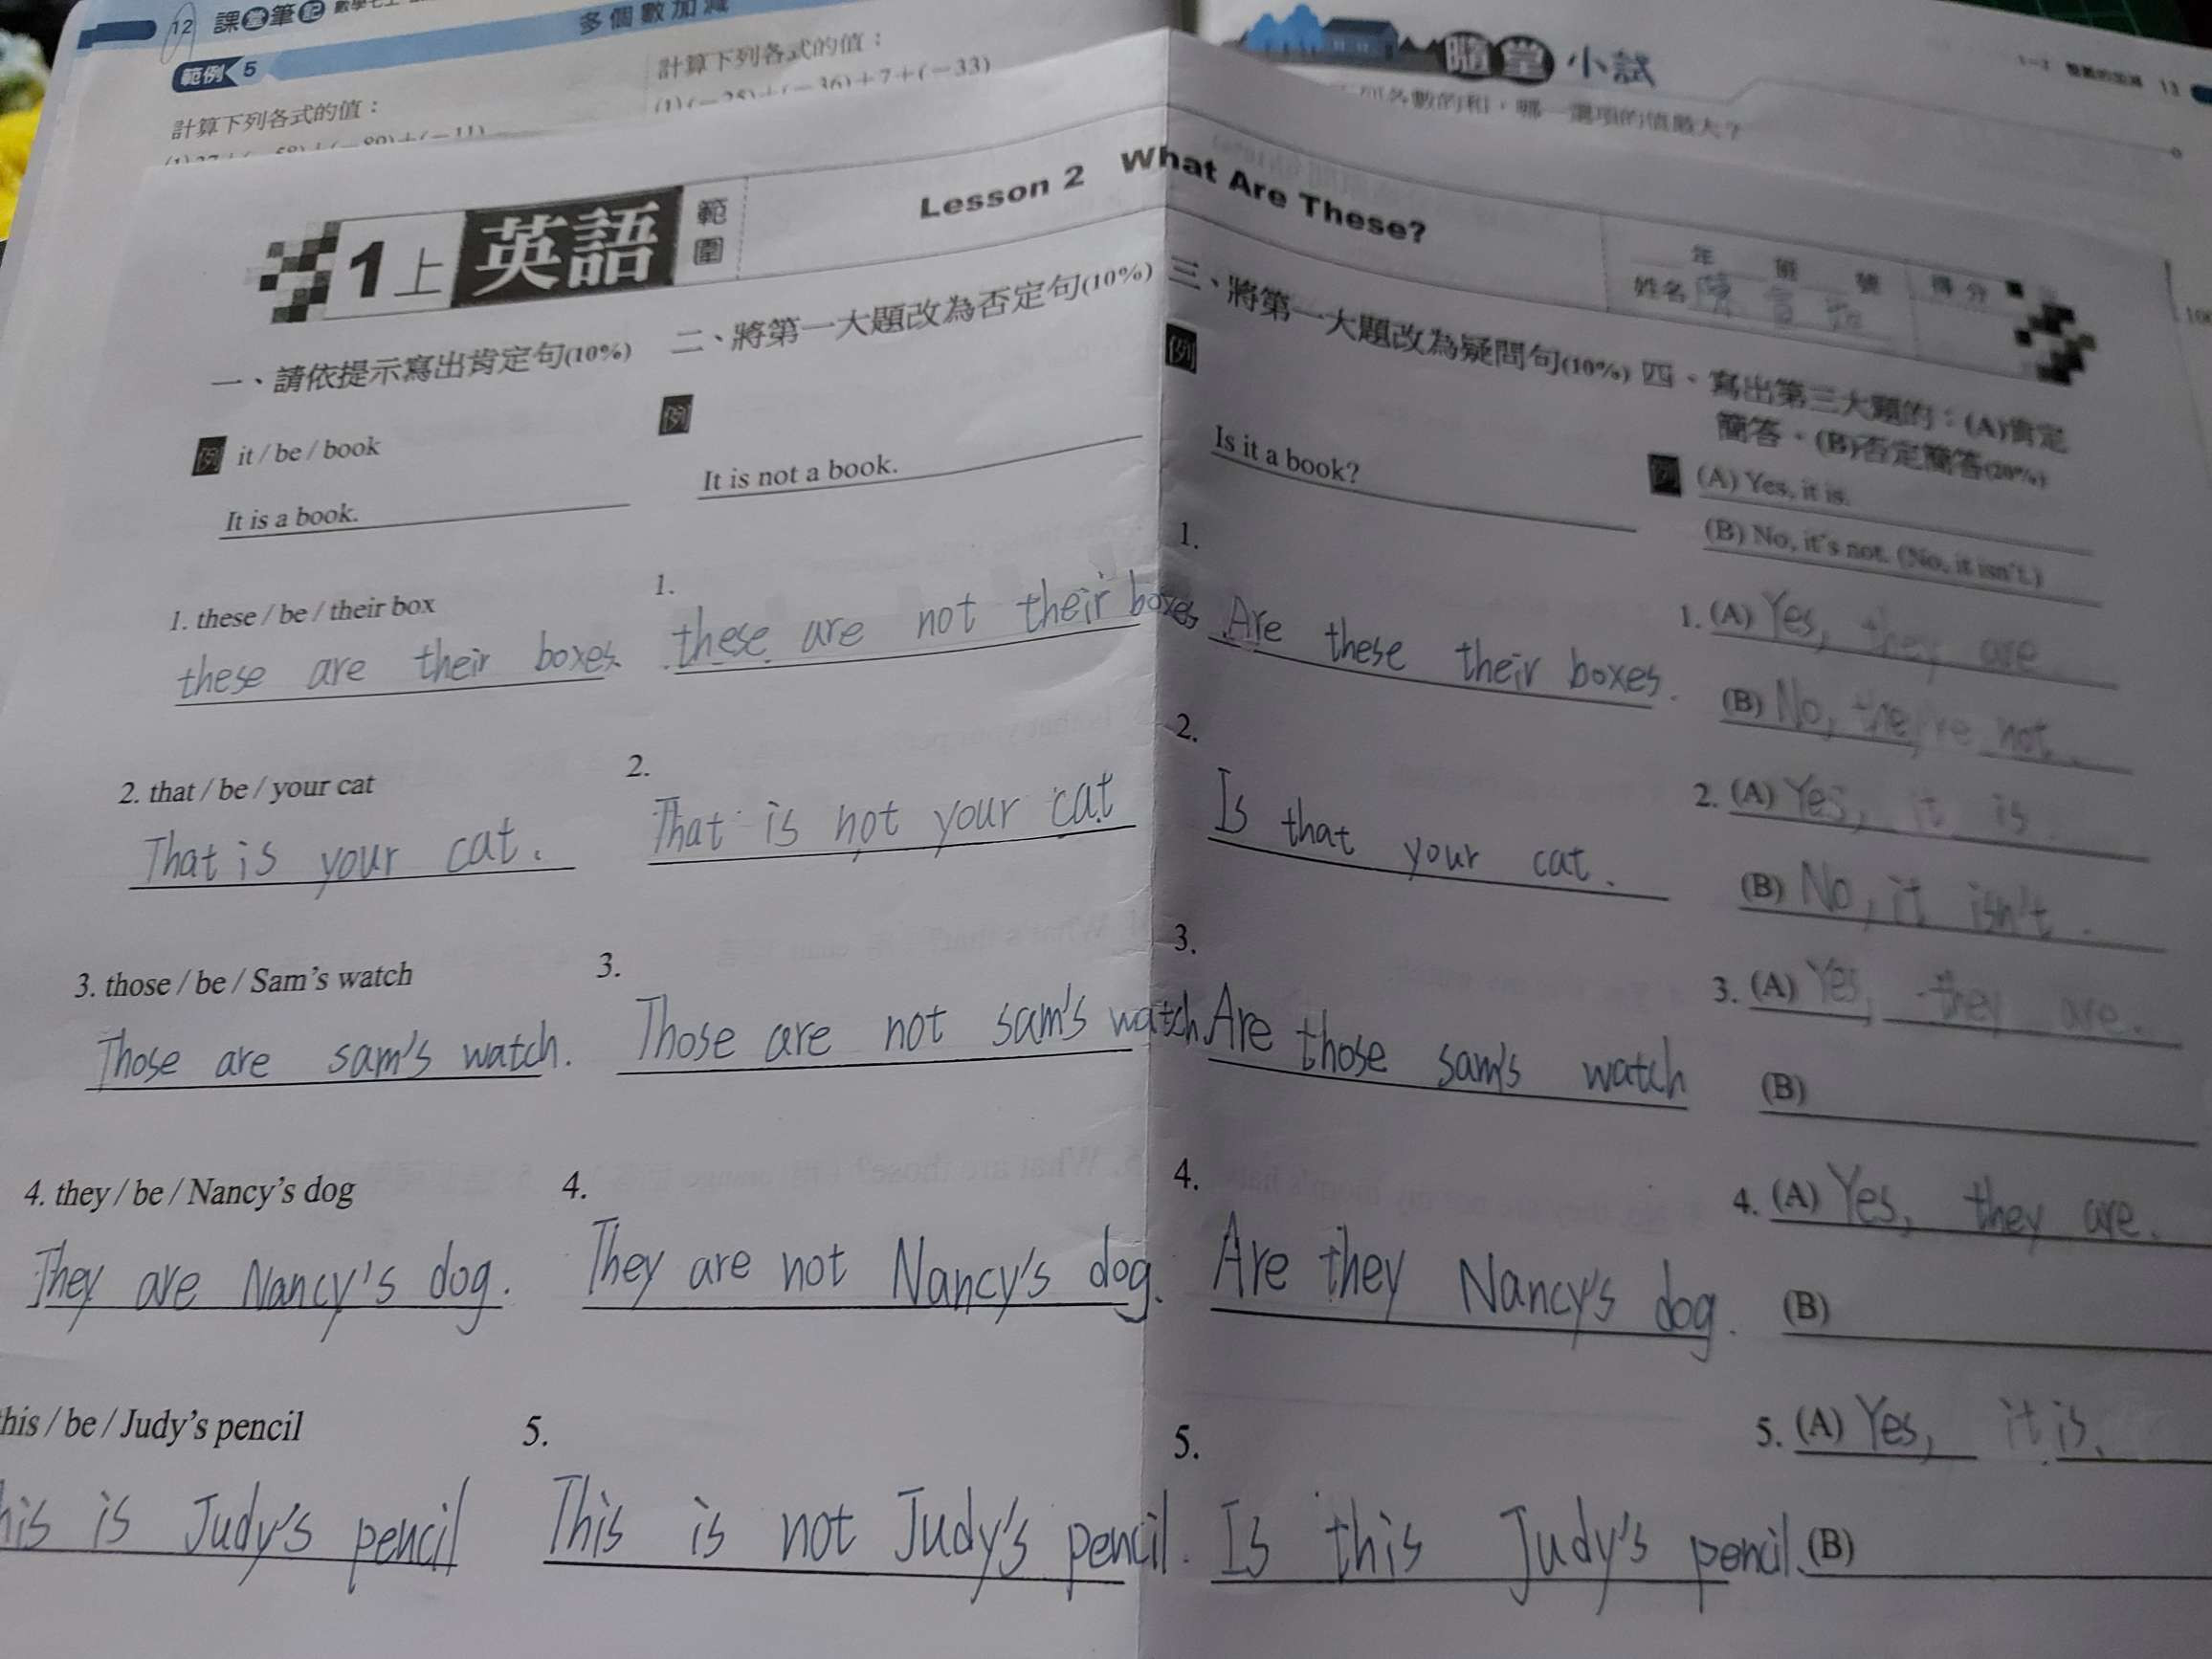 12 課堂筆記
多個數加減
範例 5
計算下列各式的值：
計算下列各式的值：
(1)(－25)＋(－36)＋7＋(－33)
隨堂小試
13
1上 英語 範圍
Lesson 2 What Are These?
年 班 號 得分
姓名
一、請依提示寫出肯定句(10%)
例 it / be / book
It is a book.
1. these / be / their box
these are their boxes.
2. that / be / your cat
That is your cat.
3. those / be / Sam's watch
Those are sam's watch.
4. they / be / Nancy's dog
They are Nancy's dog.
his / be / Judy's pencil
his is Judy's pencil
二、將第一大題改為否定句(10%)
例
It is not a book.
1.
these are not their boxes
2.
That is not your cat
3.
Those are not sam's watch.
4.
They are not Nancy's dog.
5.
This is not Judy's pencil.
三、將第一大題改為疑問句(10%)
例
Is it a book?
1.
Are these their boxes.
2.
Is that your cat.
3.
Are those sam's watch
4.
Are they Nancy's dog.
5.
Is this Judy's pencil.
四、寫出第三大題的：(A)肯定
簡答、(B)否定簡答(20%)
例 (A) Yes, it is.
(B) No, it's not. (No, it isn't.)
1. (A) Yes, they are
(B) No, they're not.
2. (A) Yes, it is.
(B) No, it isn't.
3. (A) Yes, they are.
(B)
4. (A) Yes, they are.
(B)
5. (A) Yes, it is.
(B)